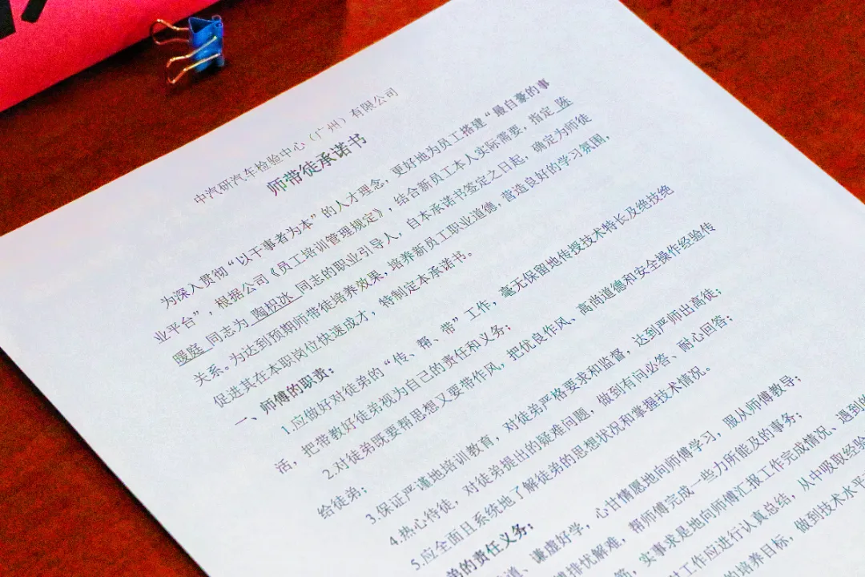 中汽研汽车检验中心（广州）有限公司
师带徒承诺书
为深入贯彻“以干事者为本”的人才理念，更好地为员工搭建“最自豪的事
业平台”，根据公司《员工培训管理规定》，结合新员工本人实际需要，指定 陈
暖庭 同志为 陶枳冰 同志的职业引导人，自本承诺书签定之日起，确定为师徒
关系。为达到预期师带徒培养效果，培养新员工职业道德，营造良好的学习氛围，
促进其在本职岗位快速成才，特制定本承诺书。
一、师傅的职责：
1.应做好对徒弟的“传、帮、带”工作，毫无保留地传授技术特长及绝技绝
活，把带教好徒弟视为自己的责任和义务；
2.对徒弟既要帮思想又要带作风，把优良作风、高尚道德和安全操作经验传
给徒弟；
3.保证严谨地培训教育，对徒弟严格要求和监督，达到严师出高徒；
4.热心待徒，对徒弟提出的疑难问题，做到有问必答、耐心回答；
5.应全面且系统地了解徒弟的思想状况和掌握技术情况。
弟的责任义务：
道、谦虚好学，心甘情愿地向师傅学习，服从师傅教导；
排忧解难，帮师傅完成一些力所能及的事务；
实事求是地向师傅汇报工作完成情况、遇到的
工作应进行认真总结，从中吸取经验
的培养目标，做到技术水平